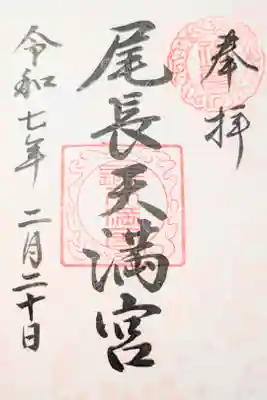 奉拝
尾長天満宮
令和七年 二月二十日